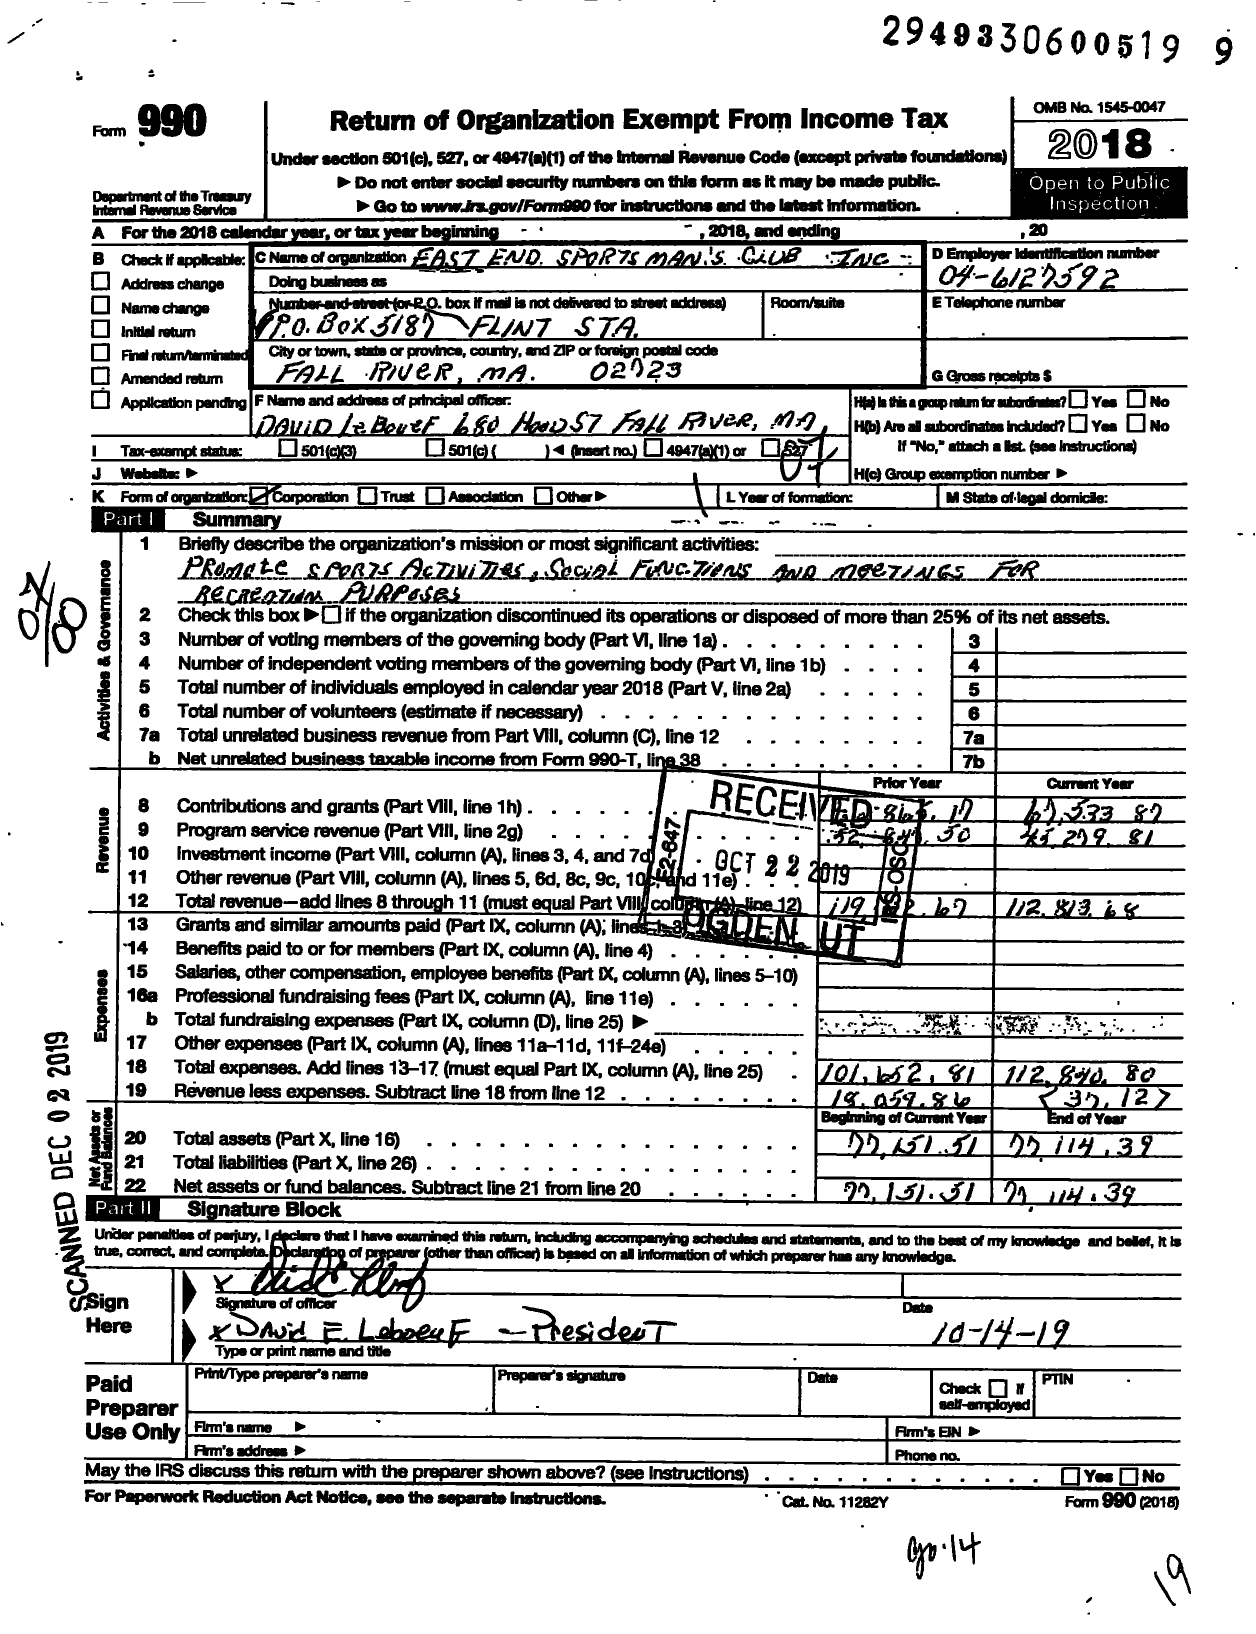 29493306005199
Form 990
Return of Organization Exempt From Income Tax
OMB No. 1545-0047
2018
Under section 501(c), 527, or 4947(a)(1) of the Internal Revenue Code (except private foundations)
▶ Do not enter social security numbers on this form as it may be made public.
▶ Go to www.irs.gov/Form990 for instructions and the latest information.
Open to Public Inspection
Department of the Treasury
Internal Revenue Service
A For the 2018 calendar year, or tax year beginning , 2018, and ending , 20
B Check if applicable:
Address change
Name change
Initial return
Final return/terminated
Amended return
Application pending
C Name of organization EAST END. SPORTSMAN'S CLUB INC
Doing business as
Number and street (or P.O. box if mail is not delivered to street address) Room/suite
P.O. BOX 5187 FLINT STA.
City or town, state or province, country, and ZIP or foreign postal code
FALL RIVER, MA. 02723
D Employer identification number
04-6127592
E Telephone number
G Gross receipts $
F Name and address of principal officer:
DAVID LeBoueF 680 HOOD ST FALL RIVER, MA
H(a) Is this a group return for subordinates? Yes No
H(b) Are all subordinates included? Yes No
If "No," attach a list. (see instructions)
H(c) Group exemption number ▶
I Tax-exempt status: 501(c)(3) 501(c) ( ) ◀ (insert no.) 4947(a)(1) or 527
07
J Website: ▶
K Form of organization: Corporation Trust Association Other ▶ L Year of formation: M State of legal domicile:
Part I Summary
Activities & Governance
1 Briefly describe the organization's mission or most significant activities:
PROMOTE SPORTS ACTIVITIES, SOCIAL FUNCTIONS AND MEETINGS FOR
RECREATION PURPOSES
2 Check this box ▶ if the organization discontinued its operations or disposed of more than 25% of its net assets.
3 Number of voting members of the governing body (Part VI, line 1a) 3
4 Number of independent voting members of the governing body (Part VI, line 1b) 4
5 Total number of individuals employed in calendar year 2018 (Part V, line 2a) 5
6 Total number of volunteers (estimate if necessary) 6
7a Total unrelated business revenue from Part VIII, column (C), line 12 7a
b Net unrelated business taxable income from Form 990-T, line 38 7b
Prior Year Current Year
Revenue
8 Contributions and grants (Part VIII, line 1h) 67,533 87
9 Program service revenue (Part VIII, line 2g) 45,279.81
10 Investment income (Part VIII, column (A), lines 3, 4, and 7d)
11 Other revenue (Part VIII, column (A), lines 5, 6d, 8c, 9c, 10c, and 11e)
12 Total revenue—add lines 8 through 11 (must equal Part VIII, column (A), line 12) 112,813.68
RECEIVED
E2-647
OCT 22 2019
IRS-OSC
OGDEN, UT
Expenses
13 Grants and similar amounts paid (Part IX, column (A), lines 1–3)
14 Benefits paid to or for members (Part IX, column (A), line 4)
15 Salaries, other compensation, employee benefits (Part IX, column (A), lines 5–10)
16a Professional fundraising fees (Part IX, column (A), line 11e)
b Total fundraising expenses (Part IX, column (D), line 25) ▶
17 Other expenses (Part IX, column (A), lines 11a–11d, 11f–24e)
18 Total expenses. Add lines 13–17 (must equal Part IX, column (A), line 25) 101,652.81 112,840.80
19 Revenue less expenses. Subtract line 18 from line 12 18,059.86 <37.12>
Net Assets or Fund Balances
Beginning of Current Year End of Year
20 Total assets (Part X, line 16) 77,151.51 77,114.39
21 Total liabilities (Part X, line 26)
22 Net assets or fund balances. Subtract line 21 from line 20 77,151.51 77,114.39
SCANNED DEC 02 2019
Part II Signature Block
Under penalties of perjury, I declare that I have examined this return, including accompanying schedules and statements, and to the best of my knowledge and belief, it is
true, correct, and complete. Declaration of preparer (other than officer) is based on all information of which preparer has any knowledge.
Sign Here
Signature of officer Date
x David E. Leboeuf - President 10-14-19
Type or print name and title
Paid Preparer Use Only
Print/Type preparer's name Preparer's signature Date Check if self-employed PTIN
Firm's name ▶ Firm's EIN ▶
Firm's address ▶ Phone no.
May the IRS discuss this return with the preparer shown above? (see instructions) Yes No
For Paperwork Reduction Act Notice, see the separate instructions. Cat. No. 11282Y Form 990 (2018)
19